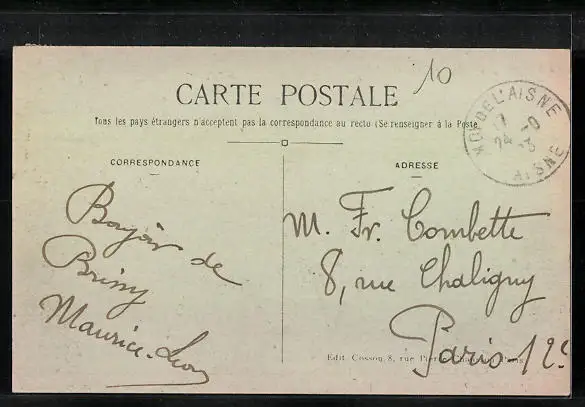 10
CARTE POSTALE
Tous les pays étrangers n'acceptent pas la correspondance au recto (Se renseigner à la Poste
CORRESPONDANCE
ADRESSE
DE L'AISNE
AISNE
Bonjour de
Maurice-Léon
M. Fr. Combette
8, rue Chaligny
Paris 12e
Edit. Cosson, 8, rue